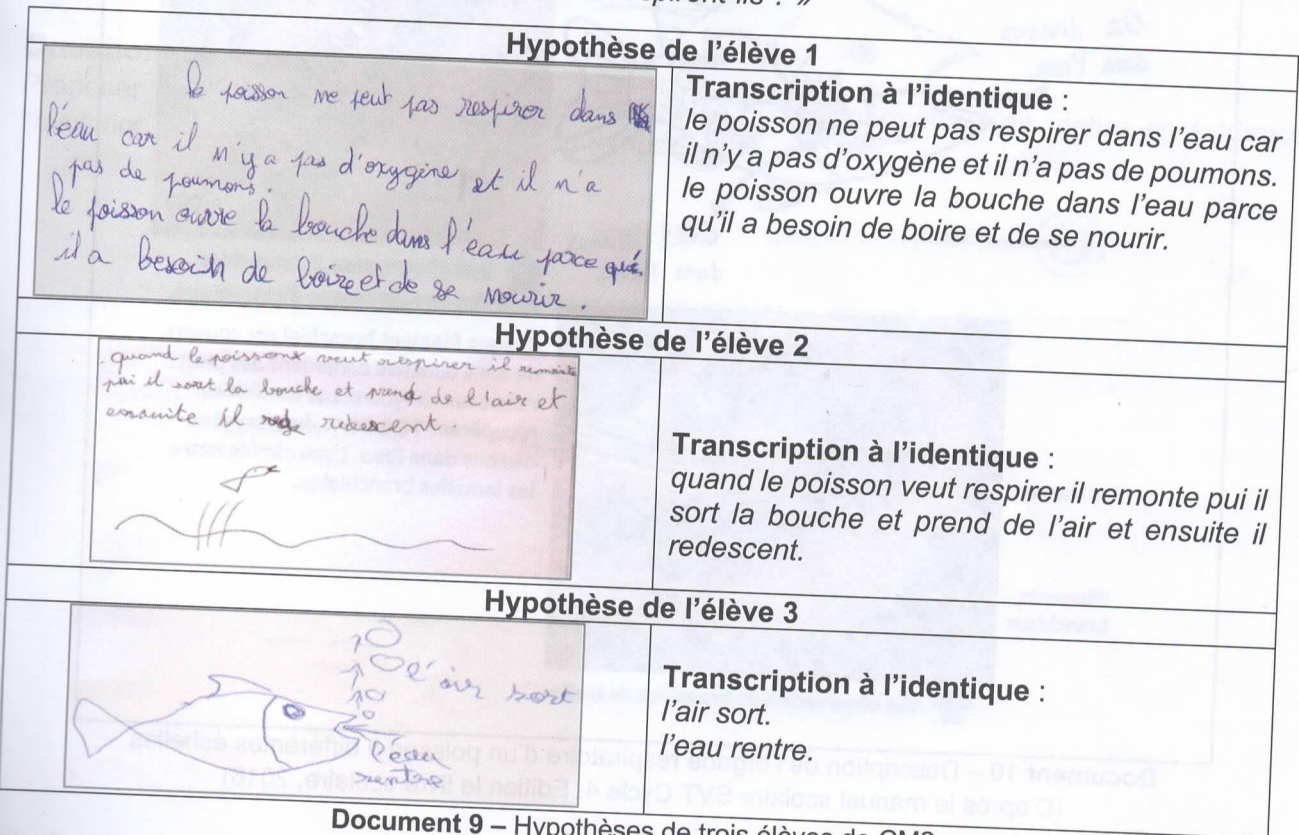 Hypothèse de l'élève 1
le poisson ne peut pas respirer dans
l'eau car il n'y a pas d'oxygène et il n'a
pas de poumons.
le poisson ouvre la bouche dans l'eau parce qué
il a besoin de boire et de se nourir.
Transcription à l'identique :
le poisson ne peut pas respirer dans l'eau car
il n'y a pas d'oxygène et il n'a pas de poumons.
le poisson ouvre la bouche dans l'eau parce
qu'il a besoin de boire et de se nourir.
Hypothèse de l'élève 2
quand le poisson veut respirer il remonte
pui il sort la bouche et prend de l'air et
ensuite il redescent
Transcription à l'identique :
quand le poisson veut respirer il remonte pui il
sort la bouche et prend de l'air et ensuite il
redescent.
Hypothèse de l'élève 3
l'air sort
l'eau
rentre
Transcription à l'identique :
l'air sort.
l'eau rentre.
Document 10 – Description de l'organe respiratoire d'un poisson à différentes échelles
(D'après le manuel scolaire SVT Cycle 4, Edition le livre scolaire, 2016)
Document 9 – Hypothèses de trois élèves de CM2